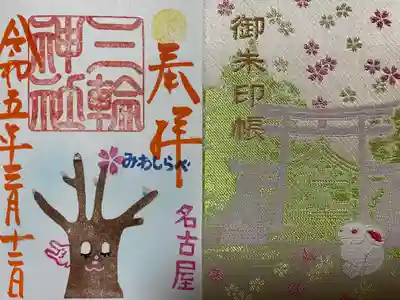 奉拝
三輪
神社
みわしらべ
名古屋
令和五年三月十二日
御朱印帳